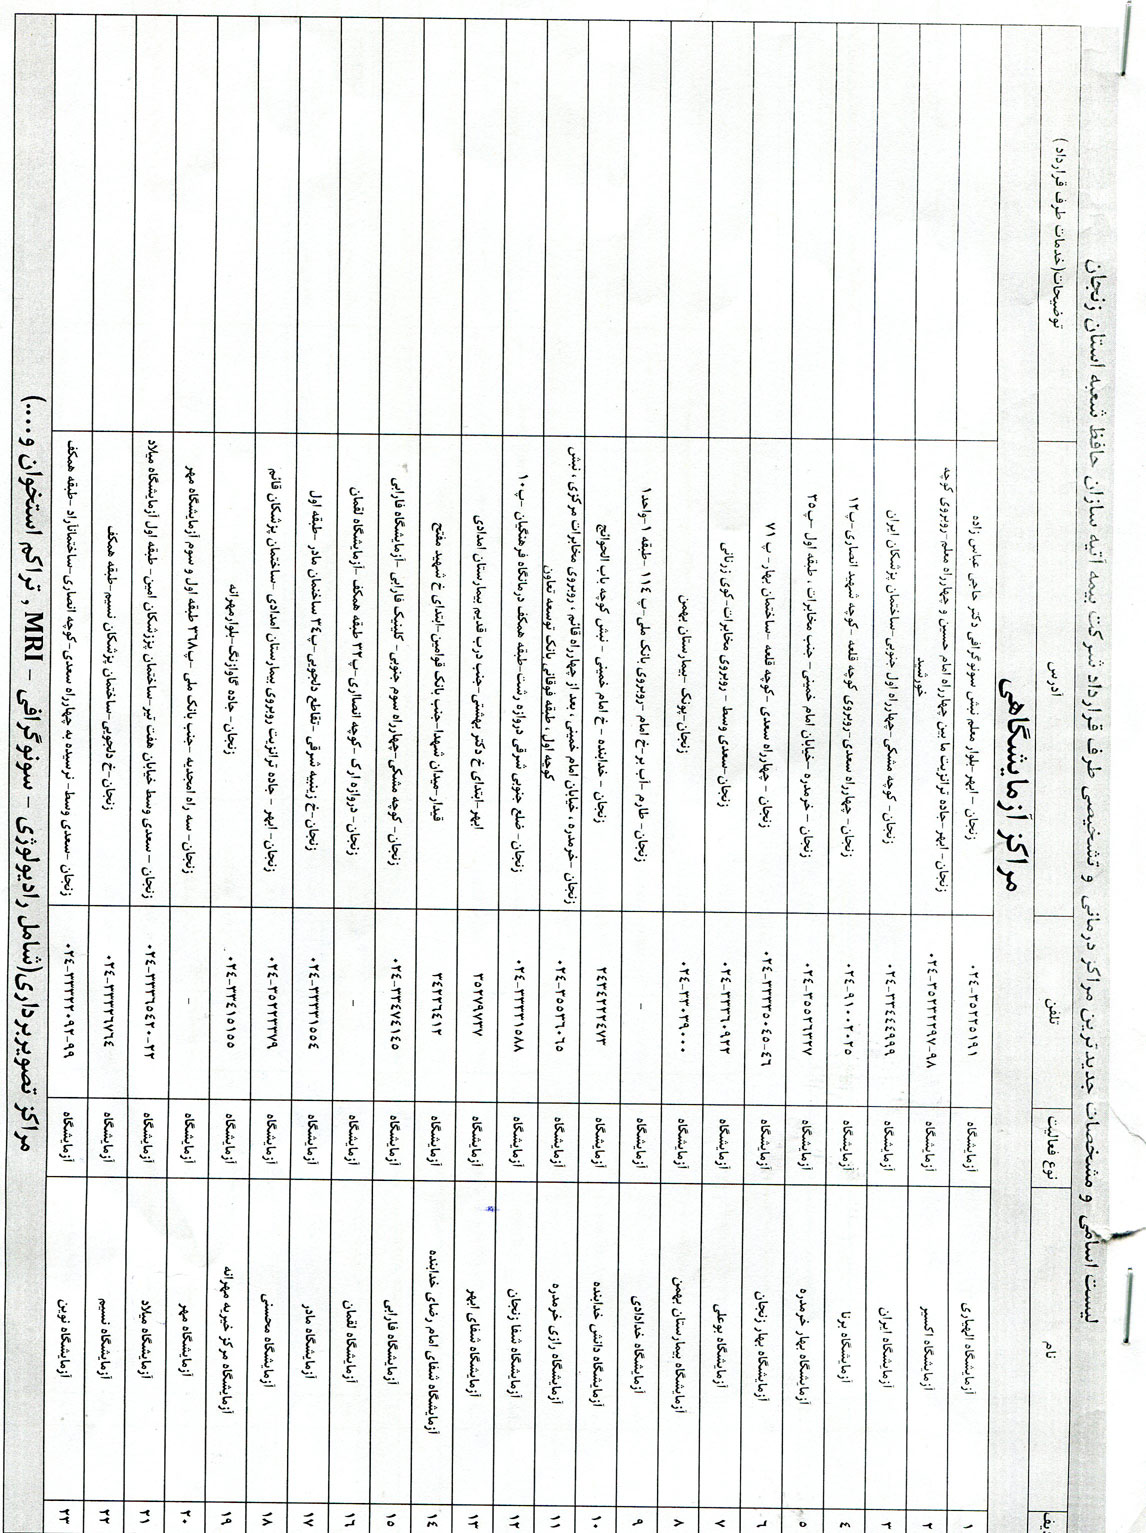 لیست اسامی و مشخصات جدیدترین مراکز درمانی و تشخیصی طرف قرارداد شرکت بیمه آتیه سازان حافظ شعبه استان زنجان
یف نام نوع فعالیت تلفن آدرس توضیحات(خدمات طرف قرارداد )
مراکز آزمایشگاهی
۱ آزمایشگاه الهیاری آزمایشگاه ۰۲۴-۳۵۲۳۵۱۹۱ زنجان - ابهر-بلوار معلم نبش سونوگرافی دکتر حاجی عباس زاده
۲ آزمایشگاه اکسیر آزمایشگاه ۰۲۴-۳۵۲۳۲۲۹۷-۹۸ زنجان- ابهر-جاده ترانزیت ما بین چهارراه امام حسین و چهارراه معلم-روبروی کوچه
خورشید
۳ آزمایشگاه ایران آزمایشگاه ۰۲۴-۳۳۴۴۴۹۹۹ زنجان - کوچه مشکی-چهارراه اول جنوبی-ساختمان پزشکان ایران
۴ آزمایشگاه برنا آزمایشگاه ۰۲۴-۹۱۰۰۲۰۲۵ زنجان- چهارراه سعدی-روبروی کوچه قلعه -کوچه شهید انصاری-پ۱۲
۵ آزمایشگاه بهار خرمدره آزمایشگاه ۰۲۴-۳۵۵۲۶۳۲۷ زنجان - خرمدره -خیابان امام خمینی - جنب مخابرات ، طبقه اول -پ۳۵
۶ آزمایشگاه بهار زنجان آزمایشگاه ۰۲۴-۳۳۳۳۵۰۴۵-۴۶ زنجان - چهارراه سعدی -کوچه قلعه -ساختمان بهار- پ ۷۱
۷ آزمایشگاه بوعلی آزمایشگاه ۰۲۴-۳۳۳۶۰۹۲۲ زنجان-سعدی وسط - روبروی مخابرات-کوی زرنانی
۸ آزمایشگاه بیمارستان بهمن آزمایشگاه ۰۲۴-۳۳۰۳۹۰۰۰ زنجان-پونک -بیمارستان بهمن
۹ آزمایشگاه خدادادی آزمایشگاه - زنجان- طارم -آب بر-خ امام -روبروی بانک ملی-پ ۱۱۴ -طبقه ۱-واحد۱
۱۰ آزمایشگاه دانش خدابنده آزمایشگاه ۲۴۳۴۲۲۲۴۷۳ زنجان - خدابنده - خ امام خمینی - نبش کوچه باب الحوائج
۱۱ آزمایشگاه رازی خرمدره آزمایشگاه ۰۲۴-۳۵۵۳۶۰۶۵ زنجان -خرمدره ، خیابان امام خمینی ، بعد از چهارراه قائم ، روبروی مخابرات مرکزی ، نبش
کوچه اول ، طبقه فوقانی بانک توسعه تعاون
۱۲ آزمایشگاه شفا زنجان آزمایشگاه ۰۲۴-۳۳۳۳۱۵۸۸ زنجان - ضلع جنوبی شرقی دروازه رشت-طبقه همکف درمانگاه فرهنگیان -پ۱۰
۱۳ آزمایشگاه شفای ابهر آزمایشگاه ۳۵۲۷۹۷۳۷ ابهر-ابتدای خ دکتر بهشتی-جنب درب قدیم بیمارستان امدادی
۱۴ آزمایشگاه شفای امام رضای خدابنده آزمایشگاه ۳۴۲۲۶۴۱۲ قیدار-میدان شهدا-جنب بانک قوامین-ابتدای خ شهید مفتح
۱۵ آزمایشگاه فارابی آزمایشگاه ۰۲۴-۳۳۴۷۴۱۴۵ زنجان- کوچه مشکی-چهارراه سوم جنوبی - کلینیک فارابی -آزمایشگاه فارابی
۱۶ آزمایشگاه لقمان آزمایشگاه - زنجان- دروازه ارک -کوچه انصاری-پ۳۲ طبقه همکف -آزمایشگاه لقمان
۱۷ آزمایشگاه مادر آزمایشگاه ۰۲۴-۳۳۳۳۱۵۵۴ زنجان-خ زینبیه شرقی -تقاطع دلجویی-پ۳۴ ساختمان مادر -طبقه اول
۱۸ آزمایشگاه محسنی آزمایشگاه ۰۲۴-۳۵۲۲۳۳۷۹ زنجان- ابهر - جاده ترانزیت روبروی بیمارستان امدادی -ساختمان پزشکان قائم
۱۹ آزمایشگاه مرکز خیریه مهرانه آزمایشگاه ۰۲۴-۳۳۴۱۵۱۵۵ زنجان - جاده گاوازنگ-بلوارمهرانه
۲۰ آزمایشگاه مهر آزمایشگاه - زنجان- سه راه امجدیه - جنب بانک ملی -پ۳۶۸ طبقه اول و سوم آزمایشگاه مهر
۲۱ آزمایشگاه میلاد آزمایشگاه ۰۲۴-۳۳۳۶۵۴۲۰-۲۲ زنجان - سعدی وسط خیابان هفت تیر-ساختمان پززشکان امین- طبقه اول آزمایشگاه میلاد
۲۲ آزمایشگاه نسیم آزمایشگاه ۰۲۴-۳۳۳۲۶۷۶۴ زنجان-خ دلجویی-ساختمان پزشکان نسیم-طبقه همکف
۲۳ آزمایشگاه نوین آزمایشگاه ۰۲۴-۳۳۳۲۲۰۹۲-۹۹ زنجان -سعدی وسط- نرسیده به چهارراه سعدی-کوچه انصاری-ساختمانآراد -طبقه همکف
مراکز تصویربرداری(شامل رادیولوژی - سونوگرافی - MRI و تراکم استخوان و....)